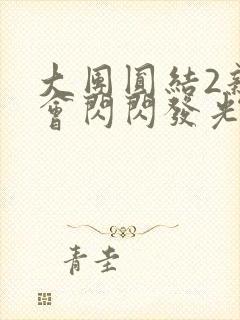 大團圓結2新
會閃閃發光
青圭